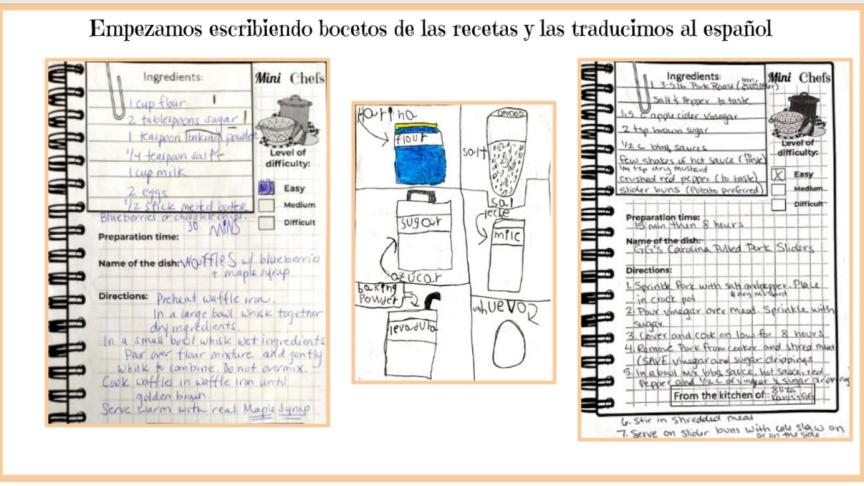 Empezamos escribiendo bocetos de las recetas y las traducimos al español
Ingredients:
Mini Chefs
1 cup flour
2 tablespoons sugar
1 teaspoon baking powder
1/4 teaspoon salt
1 cup milk
2 eggs
1/2 stick melted butter
Blueberries or
Level of
difficulty:
Easy
Medium
Difficult
Preparation time:
30 MINS
Name of the dish: Waffles w/ blueberries
+ maple syrup
Directions: Preheat waffle iron.
In a large bowl whisk together
dry ingredients.
In a small bowl whisk wet ingredients
Pour over flour mixture and gently
whisk to combine. Do not overmix.
Cook waffles in waffle iron until
golden brown
Serve warm with real Maple Syrup
Harina
flour
salt
sal
sugar
azucar
lece
milc
baking
powder
levadura
huevo
Ingredients:
Mini Chefs
3-5 lb Pork Roast
Salt & Pepper to taste
1.5 c apple cider vinegar
2 tsp brown sugar
1/2 c bbq sauces
Few shakes of hot sauce (to taste)
1/4 tsp dry mustard
crushed red pepper (to taste)
slider buns (Potato preferred)
Level of
difficulty:
X Easy
Medium
Difficult
Preparation time:
15 min than 8 hours
Name of the dish:
GG's Carolina Pulled Pork Sliders
Directions:
1. Sprinkle Pork with salt and pepper. Place
& dry mustard
in crock pot
2. Pour vinegar over meat. Sprinkle with
sugar.
3. Cover and cook on low for 8 hours
4. Remove Pork from cooker and shred meat
(SAVE vinegar and sugar drippings
5. In a bowl mix bbq sauce, hot sauce, red
Pepper and 1/2 c of vinegar & sugar drippings
From the kitchen of:
6. Stir in shredded meat
7. Serve on slider buns with cole slaw on
or on the side